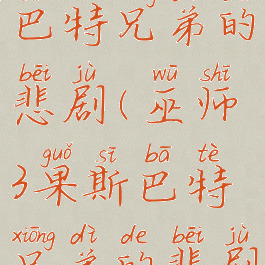 巴特兄弟的
bēi jù wū shī
悲剧(巫师
guǒ sī bā tè
3果斯巴特
xiōng dì de bēi jù
兄弟的悲剧